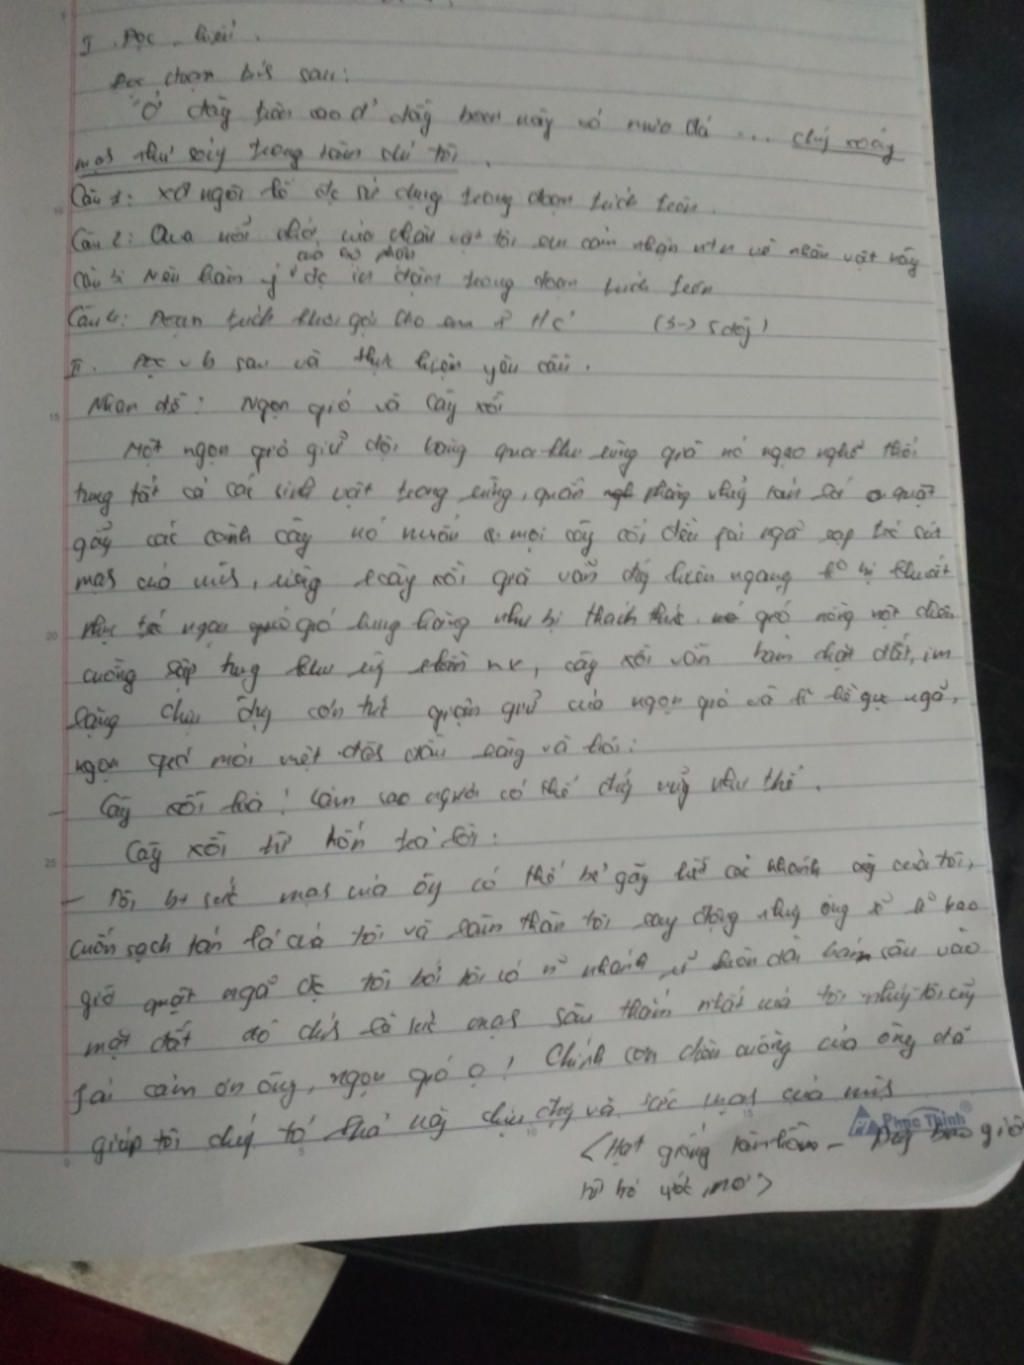 I. Đọc hiểu.
Đọc đoạn trích sau:
"Ở đây trên cao ở đây hơn này có mưa đá ... chúng xoáy
mạnh như sóng trong tâm chí tôi
Câu 1: XĐ ngôi kể đc sử dụng trong đoạn trích trên.
Câu 2: Qua nỗi nhớ của nhân vật tôi em cảm nhận ntn về nhân vật này
Câu 3: Nêu hàm ý của bộ phận đc in đậm trong đoạn trích trên
Câu 4: Đoạn trích khơi gợi cho em t/c (3-> 5 dòng)
II. Đọc vb sau và thực hiện yêu cầu.
Nhan đề: Ngọn gió và cây sồi
Một ngọn gió giữ dội băng qua khu rừng già nó ngạo nghễ thổi
tung tất cả các sinh vật trong rừng, quấn phăng những tán lá quật
gẫy các cành cây nó muốn mọi cây cối đều fải ngả rạp trc sức
mạnh của mình, riêng cây sồi già vẫn đứng hiên ngang bị khuất
phục trc ngọn gió hung hăng như bị thách thức gió nóng điên
cuồng lật tung khu rừng lần nx, cây sồi vẫn bám chặt đất, im
lặng chịu đựng cơn tức giận giữ của ngọn gió và gục ngã,
ngọn gió mỏi mệt đành đầu hàng và hỏi:
Cây sồi kia! làm sao ngươi có thể đứng vững như thế.
Cây sồi từ tốn trả lời:
- Tôi, sức mạnh của ông có thể bẻ gãy hết các nhánh cây của tôi,
cuốn sạch tán lá của tôi và làm thân tôi lay động nhưng ông bao
giờ quật ngã đc tôi bởi tôi có nhánh rễ dài bám sâu vào
mặt đất đó chính là sức mạnh sâu thẳm nhất của tôi nhưng tôi cũng
fải cảm ơn ông, ngọn gió ạ! Chính cơn điên cuồng của ông đã
giúp tôi chứng tỏ khả năng chịu đựng và sức mạnh của mình
Phuc Thinh
<Hạt giống tâm hồn - Đừng bao giờ
từ bỏ ước mơ>